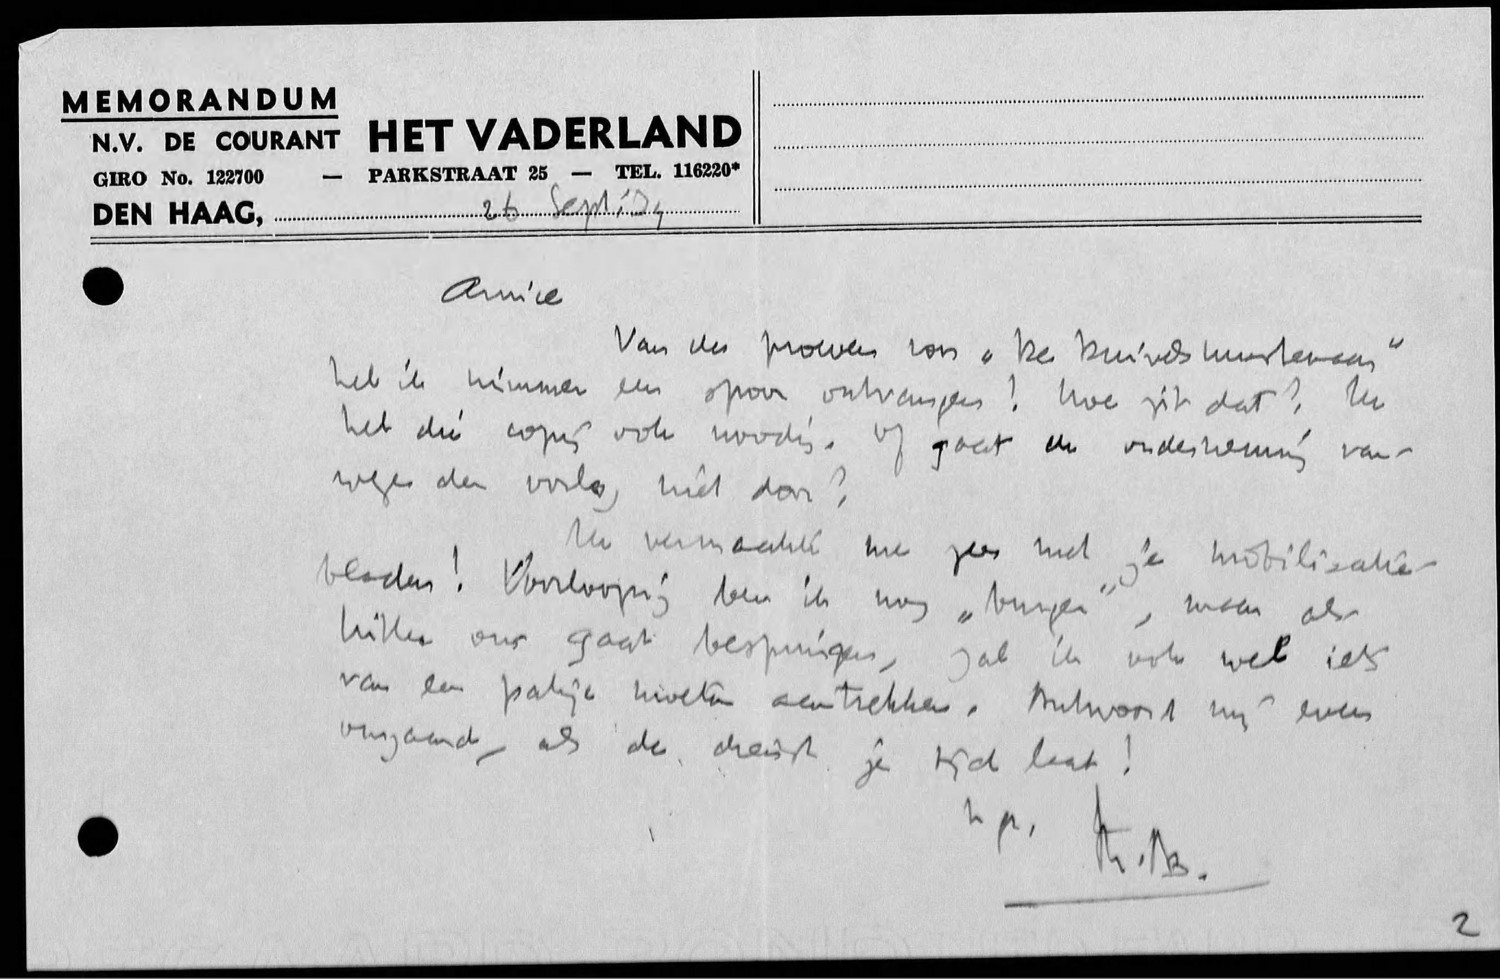 MEMORANDUM
N.V. DE COURANT HET VADERLAND
GIRO No. 122700 — PARKSTRAAT 25 — TEL. 116220*
DEN HAAG, 26 Sept '39
Amice
Van de proeven van „De
heb ik nimmer een spoor ontvangen! Hoe zit dat? Ik
heb die copij ook noodig. Of gaat de onderneming van-
wege den oorlog niet door?
Ik vermaakte me zeer met je mobilisatie-
bladen! Voorloopig ben ik nog „burger”, maar als
Hitler ons gaat bespringen, zal ik ook wel iets
van een pakje moeten aantrekken. Antwoord mij even
omgaand, als de dienst je tijd laat!
h.gr.
M.t.B.
2